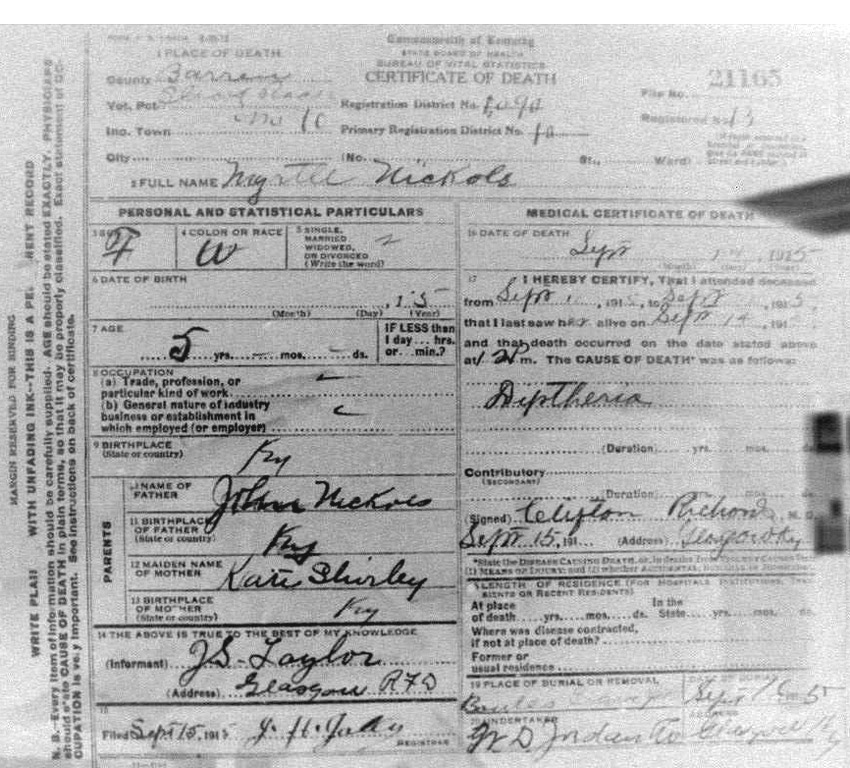 Commonwealth of Kentucky
STATE BOARD OF HEALTH
BUREAU OF VITAL STATISTICS
CERTIFICATE OF DEATH
1 PLACE OF DEATH
County Barren
Vot. Pct.
Inc. Town
City
Registration District No.
Primary Registration District No.
File No. 21165
Registered No. 13
(No. St., Ward)
2 FULL NAME Myrtle Nickols
PERSONAL AND STATISTICAL PARTICULARS
3 SEX F
4 COLOR OR RACE W
5 SINGLE,
MARRIED
WIDOWED,
OR DIVORCED
(Write the word)
6 DATE OF BIRTH
, 1
(Month) (Day) (Year)
7 AGE
5 yrs. mos. ds.
IF LESS than
1 day ... hrs.
or ... min.?
8 OCCUPATION
(a) Trade, profession, or
particular kind of work
(b) General nature of industry
business or establishment in
which employed (or employer)
9 BIRTHPLACE
(State or country) Ky
PARENTS
10 NAME OF
FATHER John Nickols
11 BIRTHPLACE
OF FATHER
(State or country) Ky
12 MAIDEN NAME
OF MOTHER Katie Shirley
13 BIRTHPLACE
OF MOTHER
(State or country) Ky
14 THE ABOVE IS TRUE TO THE BEST OF MY KNOWLEDGE
(Informant) J.S. Taylor
(Address) Glasgow RFD
15
Filed Sept 15, 1915
REGISTRAR
MEDICAL CERTIFICATE OF DEATH
16 DATE OF DEATH
Sept 1915
(Month) (Day) (Year)
17 I HEREBY CERTIFY, That I attended deceased
from Sept 1, 191 to Sept 191
that I last saw her alive on Sept 14, 191
and that death occurred on the date stated above
at m. The CAUSE OF DEATH* was as follows:
Diptheria
(Duration) yrs. mos. ds.
Contributory
(SECONDARY)
(Duration) yrs. mos. ds.
(Signed) Clifton Richards, M. D.
Sept 15, 191 (Address) Glasgow Ky
*State the DISEASE CAUSING DEATH, or, in deaths from VIOLENT CAUSES
(1) MEANS OF INJURY; and (2)
18 LENGTH OF RESIDENCE (FOR HOSPITALS, INSTITUTIONS, TRAN-
SIENTS OR RECENT RESIDENTS)
At place In the
of death yrs. mos. ds. State yrs. mos. ds.
Where was disease contracted,
if not at place of death?
Former or
usual residence
19 PLACE OF BURIAL OR REMOVAL
DATE OF BURIAL
Sept 191 5
20 UNDERTAKER
ADDRESS
W D Jordan Co Glasgow Ky
MARGIN RESERVED FOR BINDING
WRITE PLAI WITH UNFADING INK—THIS IS A PE RENT RECORD
N. B.—Every item of information should be carefully supplied. AGE should be stated EXACTLY. PHYSICIANS
should state CAUSE OF DEATH in plain terms, so that it may be properly classified. Exact statement of OC-
CUPATION is very important. See instructions on back of certificate.